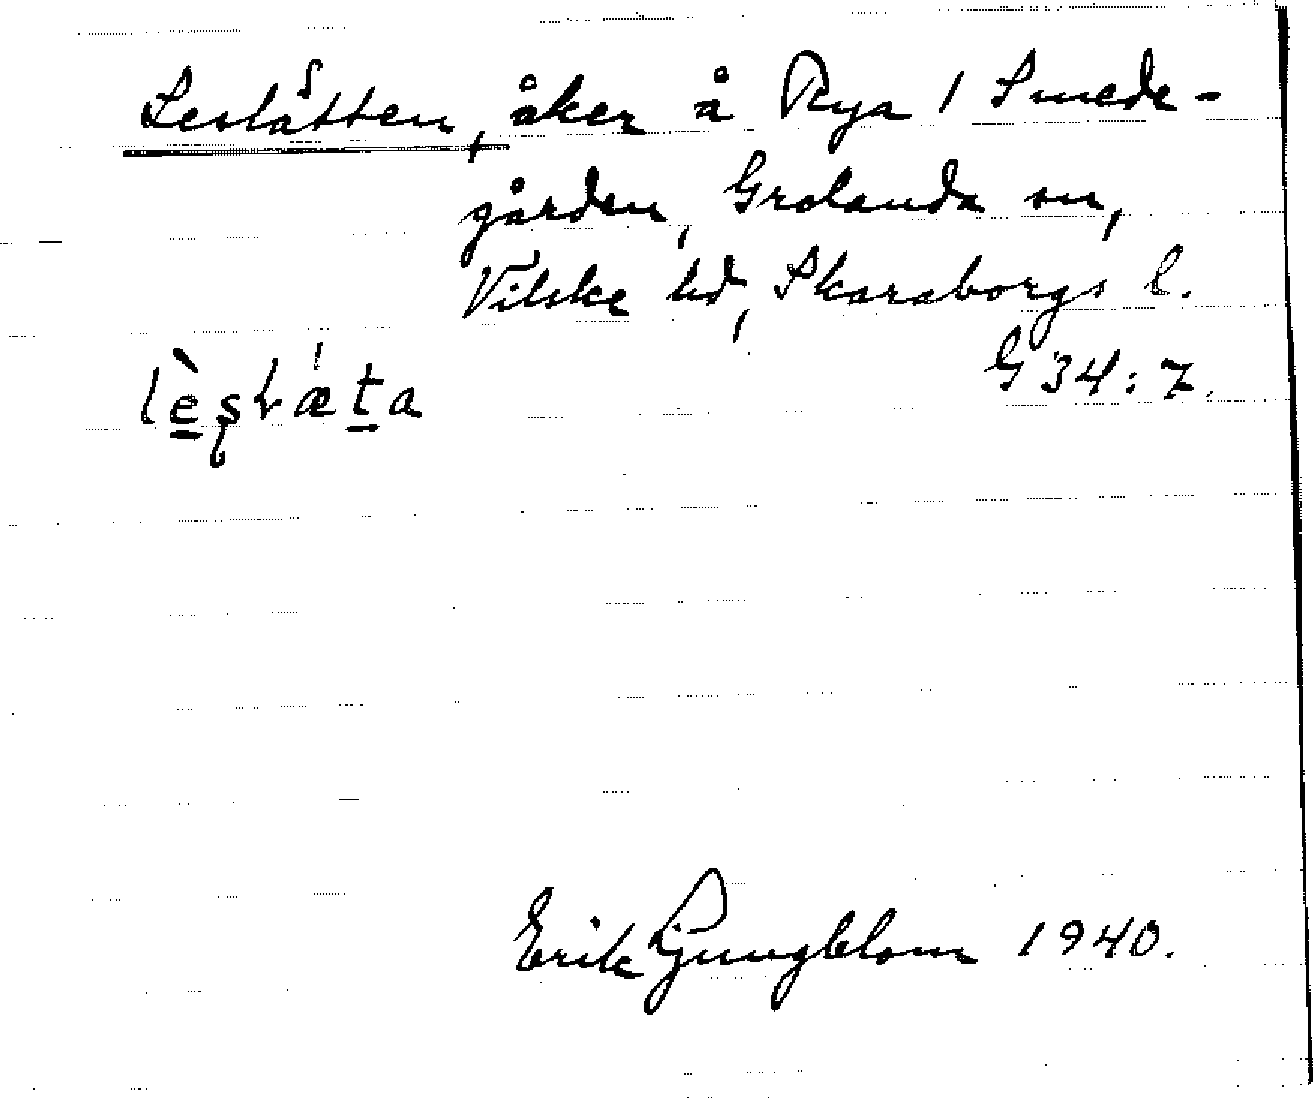 Leslåtten, åker å Rya 1 Smede-
gården, Grolanda sn,
Vilske hd, Skaraborgs l.
G 34:7.
Erik Ljungblom 1940.